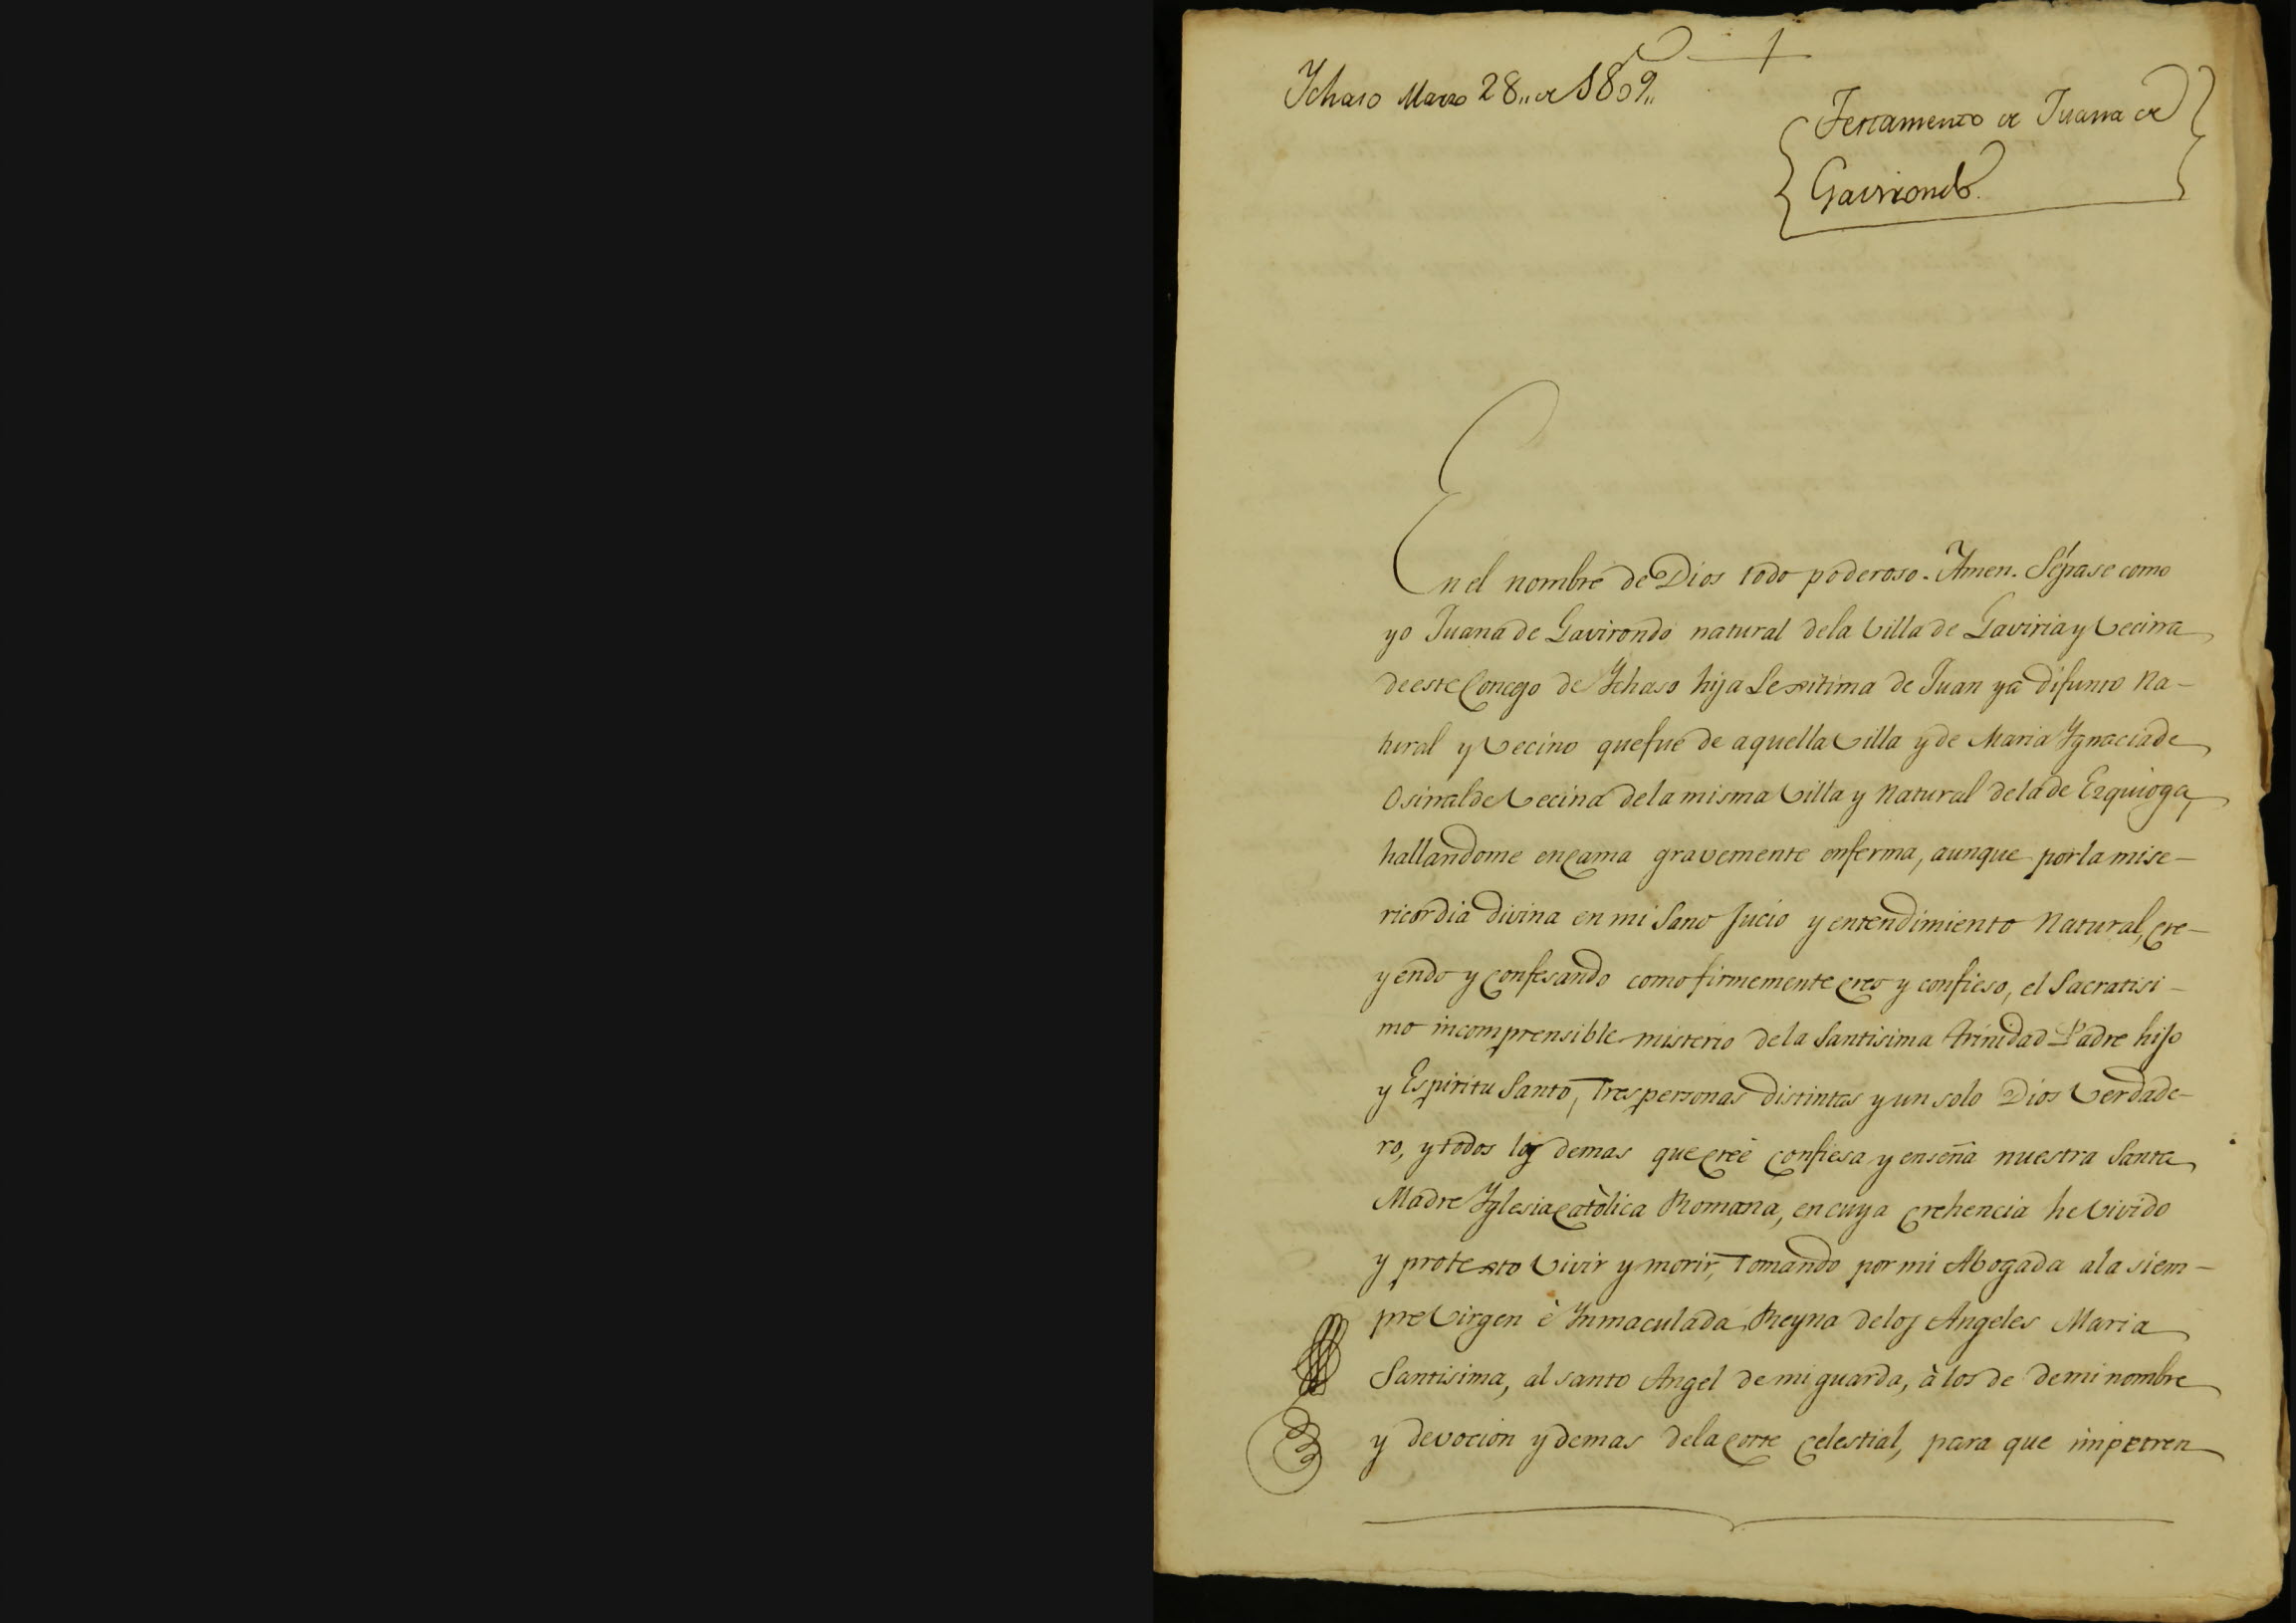 Ychaso Marzo 28,, de 1809,,
Testamento de Juana de
Gavirondo.
En el nombre de Dios todo poderoso. Amen. Sépase como
yo Juana de Gavirondo natural de la Villa de Gaviria y Vecina
de este Concejo de Ychaso hija Lexitima de Juan ya difunto Na-
tural y Vecino que fué de aquella Villa y de Maria Ygnacia de
Osinalde Vecina de la misma Villa y Natural de la de Ezquioga,
hallandome en cama gravemente enferma, aunque por la mise-
ricordia divina en mi Sano Jucio y entendimiento Natural, cre-
yendo y confesando como firmemente creo y confieso, el Sacratisi-
mo incomprensible misterio de la Santisima trinidad Padre hijo
y Espiritu Santo, Tres personas distintas y un solo Dios Verdade-
ro, y todos los demas que creé confiesa y enseña nuestra Santa
Madre Yglesia catòlica Romana, en cuya crehencia he Vivido
y protexto Vivir y morir, Tomando por mi Abogada a la siem-
pre Virgen è Ynmaculada Reyna de los Angeles Maria
Santisima, al santo Angel de mi guarda, à los de de mi nombre
y devocion y demas de la corte celestial, para que impetren